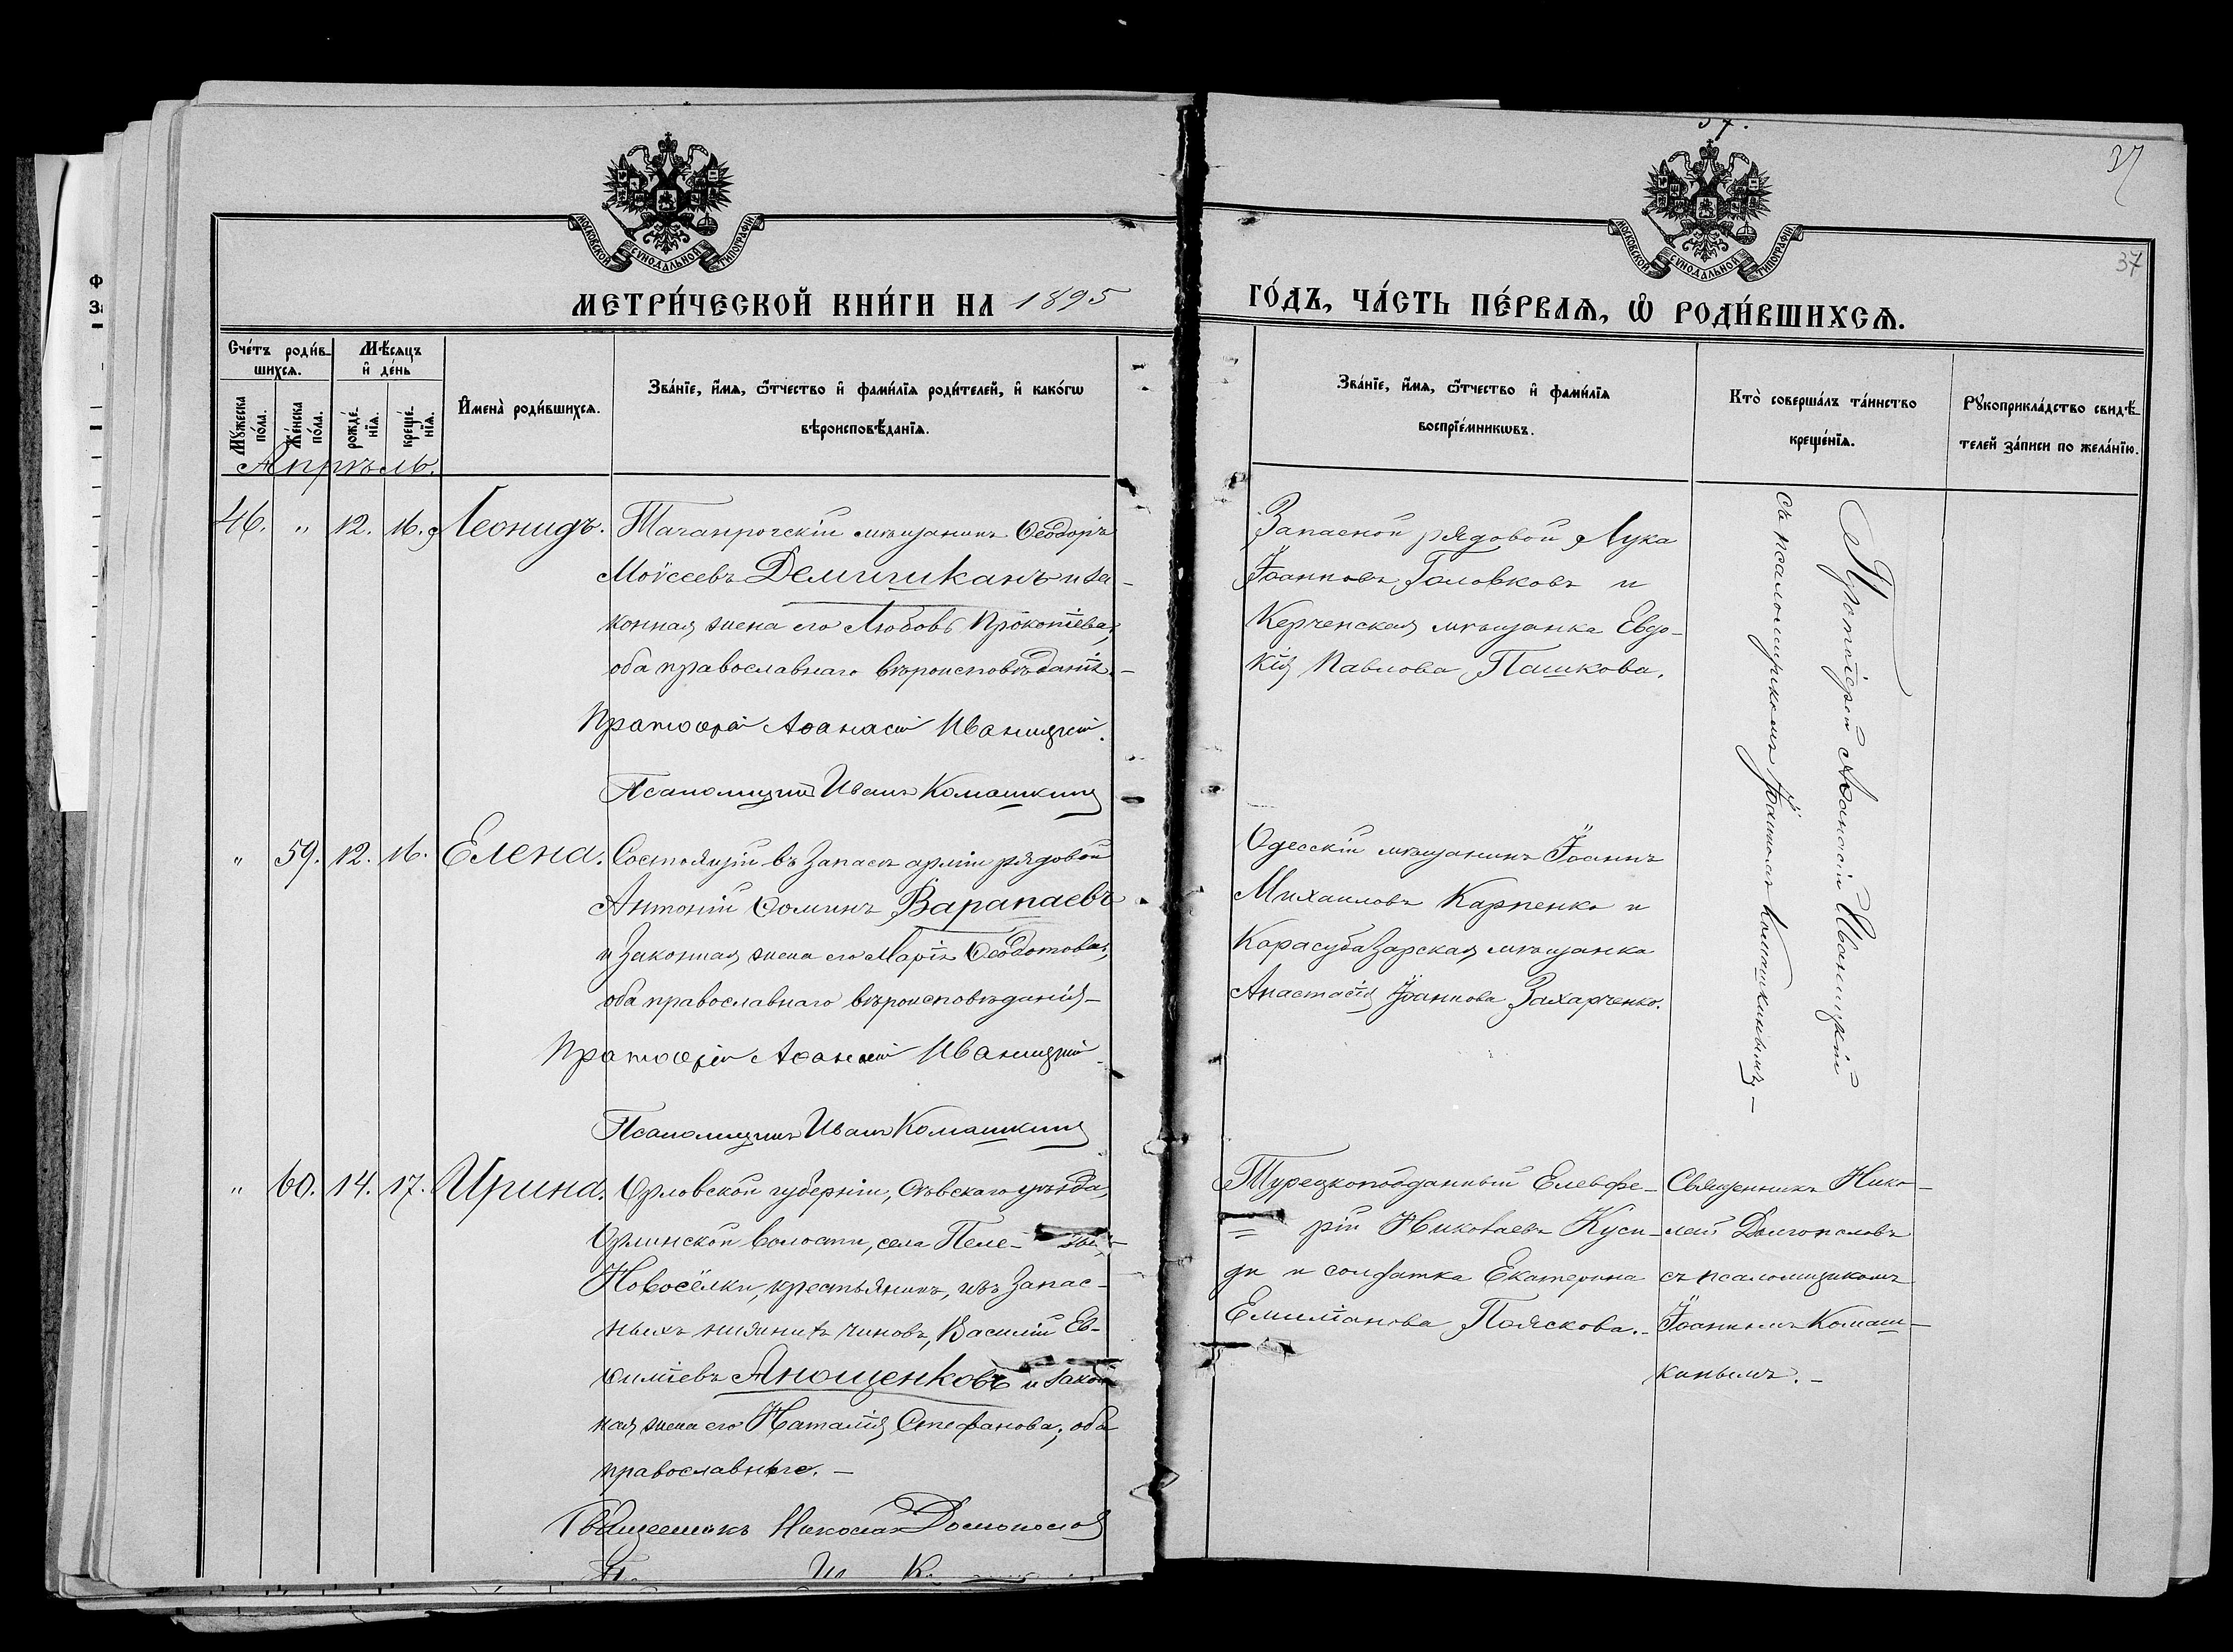 37.
37
37
МОСКОВСКОЙ СѴНОДАЛЬНОЙ ТИПОГРАФІИ
МОСКОВСКОЙ СѴНОДАЛЬНОЙ ТИПОГРАФІИ
МЕТРИ́ЧЕСКОЙ КНИ́ГИ НА 1895
ГО́ДЪ, ЧА́СТЬ ПЕ́РВАѦ, Ѡ҆ РОДИ́ВШИХСѦ.
Сче́тъ роди́в-
шихсѧ.
Мꙋ́жеска по́ла.
Же́нска по́ла.
Мѣ́сѧцъ
и҆ де́нь
рожде́-
нїѧ.
креще́-
нїѧ.
И҆мена̀ роди́вшихсѧ.
Зва́нїе, и҆́мѧ, ѻ҆́тчество и҆ фами́лїѧ роди́телей, и҆ како́гѡ
вѣроисповѣ́данїѧ.
Зва́нїе, и҆́мѧ, ѻ҆́тчество и҆ фами́лїѧ
воспрїе́мникѡвъ.
Кто̀ соверша́лъ та́инство
креще́нїѧ.
Рꙋкоприкла́дство свидѣ́-
телей за́писи по жела́нїю.
Апрѣль.
46. " 12. 16. Леонидъ.
Таганрогскій мѣщанинъ Ѳеодоръ
Моѵсеевъ Демишканъ и за-
конная жена его Любовь Прокопіева,
оба православнаго вѣроисповѣданія.-
Протоіерей Аѳанасій Иваницкій.
Псаломщикъ Иванъ Комашкинъ
Запасной рядовой Лука
Іоанновъ Головковъ и
Керченская мѣщанка Евдо-
кія Павлова Пашкова.
Протоіерей Аѳанасій Иваницкій
съ псаломщикомъ Іоанномъ Комашкинымъ.-
" 59. 12. 16. Елена.
Состоящій въ запасѣ арміи рядовой
Антоній Ѳоминъ Варапаевъ
и законная жена его Марія Ѳеодотова,
оба православнаго вѣроисповѣданія-
Протоіерей Аѳанасій Иваницкій
Псаломщикъ Иванъ Комашкинъ
Одесскій мѣщанинъ Іоаннъ
Михаиловъ Карпенко и
Карасубазарская мѣщанка
Анастасія Іоаннова Захарченко.
" 60. 14. 17. Ирина.
Орловской губерніи, Сѣвскаго уѣзда,
Орлинской волости, села
Новосёлки, крестьянинъ, изъ запас-
ныхъ нижнихъ чиновъ, Василій Ев-
ѳиміевъ Анощенковъ и закон
ная жена его Наталія Стефанова; оба
православные.-
Священникъ Николай Долгополов
Турецкоподданный Елевфе-
рій Николаевъ Куси-
ди и солдатка Екатерина
Емиліанова Пояскова.-
Священникъ Нико-
лай Долгополовъ
съ псаломщикомъ
Іоанномъ Комаш-
кинымъ.-